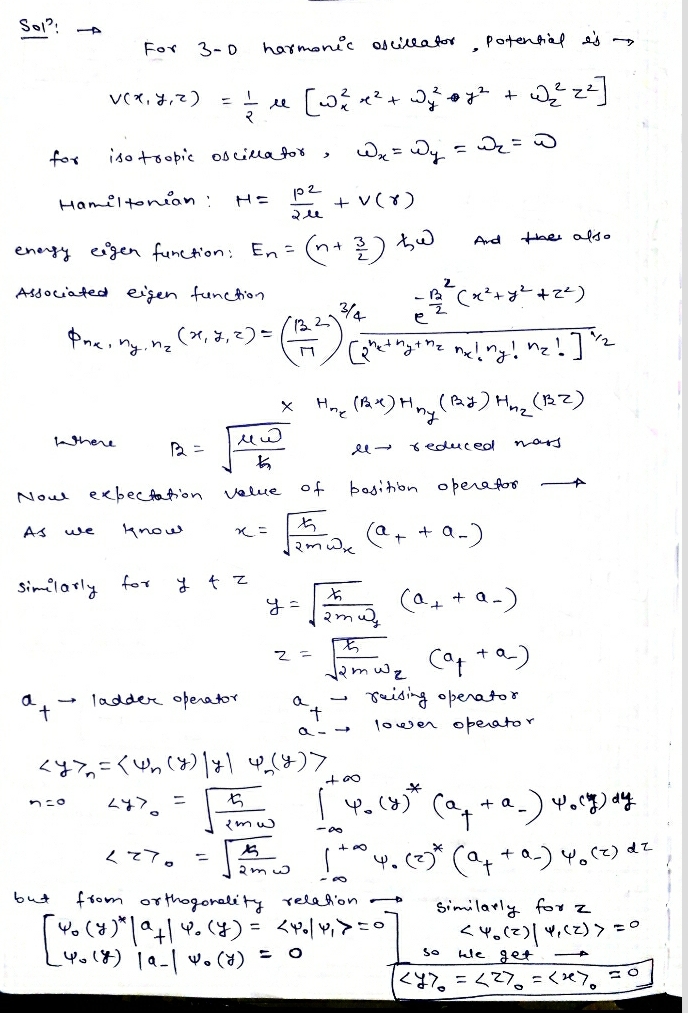 Solⁿ: →
For 3-D harmonic oscillator, Potential is →
V(x, y, z) = 1/2 μ [ω_x² x² + ω_y² y² + ω_z² z²]
for isotropic oscillator, ω_x = ω_y = ω_z = ω
Hamiltonian: H = p²/2μ + V(r)
energy eigen function: En = (n + 3/2) ħω And also
Associated eigen function
Φ_{nx, ny, nz} (x, y, z) = (β²/π)^{3/4} e^{-β²/2 (x² + y² + z²)} / [2^{nx+ny+nz} nx! ny! nz!]^{1/2}
× H_{nx}(βx) H_{ny}(βy) H_{nz}(βz)
Where β = √(μω/ħ) μ → reduced mass
Now expectation value of position operator →
As we know x = √(ħ/2mω_x) (a₊ + a₋)
Similarly for y & z
y = √(ħ/2mω_y) (a₊ + a₋)
z = √(ħ/2mω_z) (a₊ + a₋)
a₊ → ladder operator a₊ → raising operator
a₋ → lower operator
<y>_n = <ψ_n(y)|y| ψ_n(y)>
n=0 <y>₀ = √(ħ/2mω) ∫_{-∞}^{+∞} ψ₀(y)* (a₊ + a₋) ψ₀(y) dy
<z>₀ = √(ħ/2mω) ∫_{-∞}^{+∞} ψ₀(z)* (a₊ + a₋) ψ₀(z) dz
but from orthogonality relation → Similarly for z
[ψ₀(y)*|a₊| ψ₀(y) = <ψ₀|ψ₁> = 0 <ψ₀(z)| ψ₁(z)> = 0
ψ₀(y) |a₋| ψ₀(y) = 0] so we get →
<y>₀ = <z>₀ = <x>₀ = 0